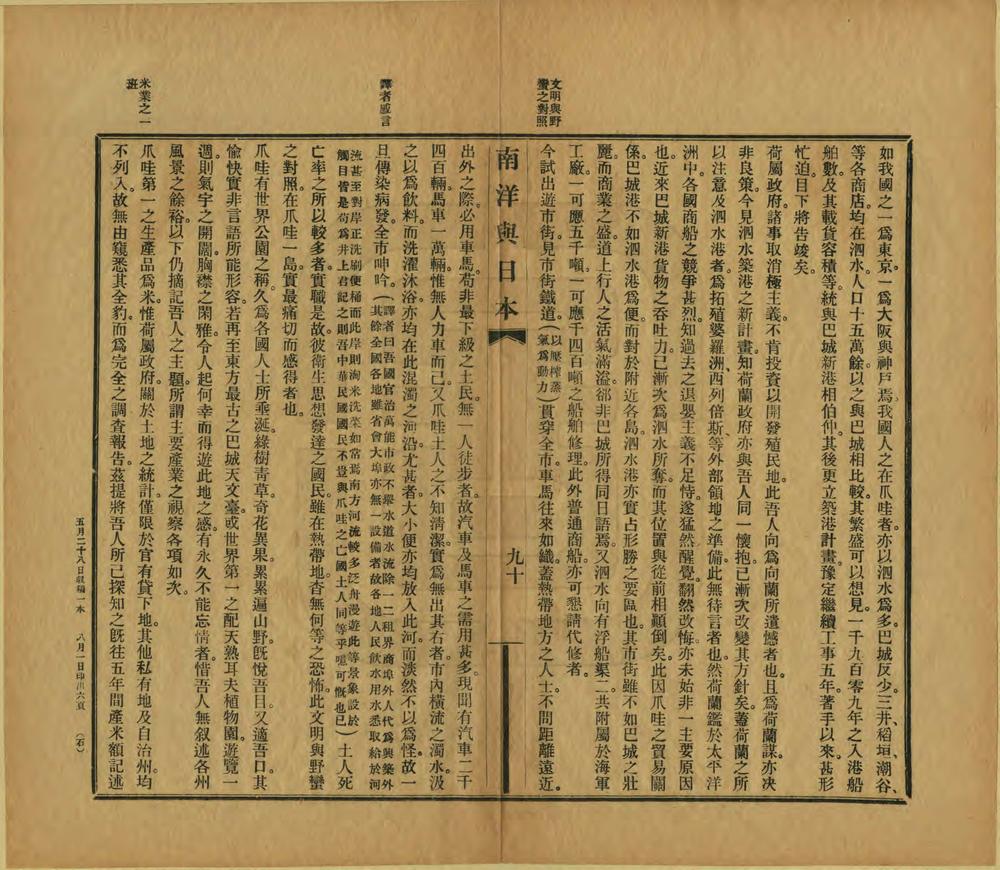 文明與野
蠻之對照
如我國之一爲東京。一爲大阪與神戶焉。我國人之在爪哇者。亦以泗水爲多。巴城反少。三井、稻垣、潮谷、
等各商店。均在泗水。人口十五萬餘。以之與巴城相比較。其繁盛可以想見。一千九百零九年之入港船
舶數。及其載貨容積等統與巴城新港相伯仲。其後更立築港計畫。豫定繼續工事五年。著手以來。甚形
忙迫。目下將告竣矣。
荷屬政府。諸事取消極主義。不肯投資以開發殖民地。此吾人向爲荷蘭所遺憾者也。且爲荷蘭謀。亦決
非良策。今見泗水築港之新計畫。知荷蘭政府亦與吾人同一懷抱。已漸次改變其方針矣。蓋荷蘭之所
以注意及泗水港者。爲拓殖婆羅洲、西列倍斯等外部領地之準備。此無待言者也。然荷蘭鑑於太平洋
洲中。各國商船之競爭甚烈。知過去之退嬰主義不足恃。遂猛然醒覺。翻然改悔。亦未始非一主要原因
也。近來巴城新港貨物之吞吐力。已漸次爲泗水所奪。而其位置與從前相顚倒矣。此因爪哇之貿易關
係。巴城港不如泗水港爲便。而對於附近各島。泗水港亦實占形勝之要區也。其市街雖不如巴城之壯
麗。而商業之盛。道上行人之活氣滿溢。郤非巴城所得同日語焉。又泗水向有浮船渠二。共附屬於海軍
工廠。一可應五千噸。一可應千四百噸之船舶修理。此外普通商船。亦可懇請代修者。
今試出遊市街。見市街鐵道。(以壓榨蒸氣爲動力)貫穿全市。車馬往來如織。蓋熱帶地方之人士。不問距離遠近。
南洋與日本
九十
譯者感言
出外之際。必用車馬。苟非最下級之土民。無一人徒步者。故汽車及馬車之需用甚多。現聞有汽車二千
四百輛。馬車一萬輛。惟無人力車而已。又爪哇土人之不知清潔。實爲無出其右者。市內橫流之濁水。汲
之以爲飲料。而洗濯沐浴。亦均在此混濁之河沿。尤甚者。大小便亦均放入此河。而淡然不以爲怪。故一
旦傳染病發。全市呻吟。(譯者曰吾國官治萬能市政不舉水道水流除一二租界商埠外人代爲興築外
其餘全國各地雖省會大埠亦無一設備者故各地人民飲水用水悉取給於河
流甚至對岸正洗刷便桶而此岸則淘米洗菜如常焉南方河流較多泛舟漫遊此等景象設於
觸目皆是苟爲井上君記之則吾中華民國國民不豈與爪哇之亡國土人同等乎噫可慨也已)土人死
亡率之所以較多者。實職是故。彼衛生思想發達之國民。雖在熱帶地。杳無何等之恐怖。此文明與野蠻
之對照。在爪哇一島。實最痛切而感得者也。
爪哇有世界公園之稱。久爲各國人士所垂涎。綠樹靑草。奇花異果。累累遍山野。旣悅吾目。又適吾口。其
愉快實非言語所能形容。若再至東方最古之巴城天文臺。或世界第一之配天熟耳夫植物園。遊覽一
週。則氣宇之開闊。胸襟之閑雅。令人起何幸而得遊此地之感。有永久不能忘情者。惜吾人無叙述各州
風景之餘裕。以下仍摘記吾人之主題。所謂主要產業之視察各項如次。
米業之一
班
爪哇第一之生產品爲米。惟荷屬政府關於土地之統計。僅限於官有貸下地。其他私有地及自治州。均
不列入。故無由窺悉其全豹。而爲完全之調查報告。茲提將吾人所已探知之旣往五年間產米額。記述
五月二十八日收稿一本　八月一日印出六頁　(石)